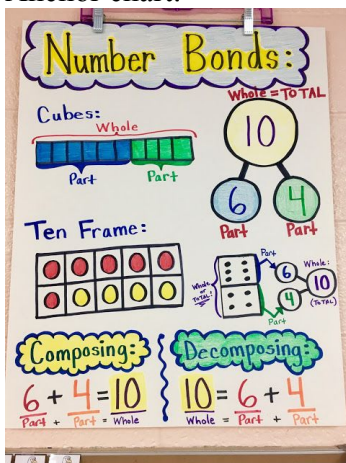 Anchor chart.
Number Bonds:
Whole = TOTAL
10
6
4
Part
Part
Cubes:
Whole
Part
Part
Ten Frame:
Whole
or
TOTAL!
Part
6
4
Part
Whole:
10
(TOTAL)
Composing:
6 + 4 = 10
Part + Part = Whole
Decomposing:
10 = 6 + 4
Whole = Part + Part